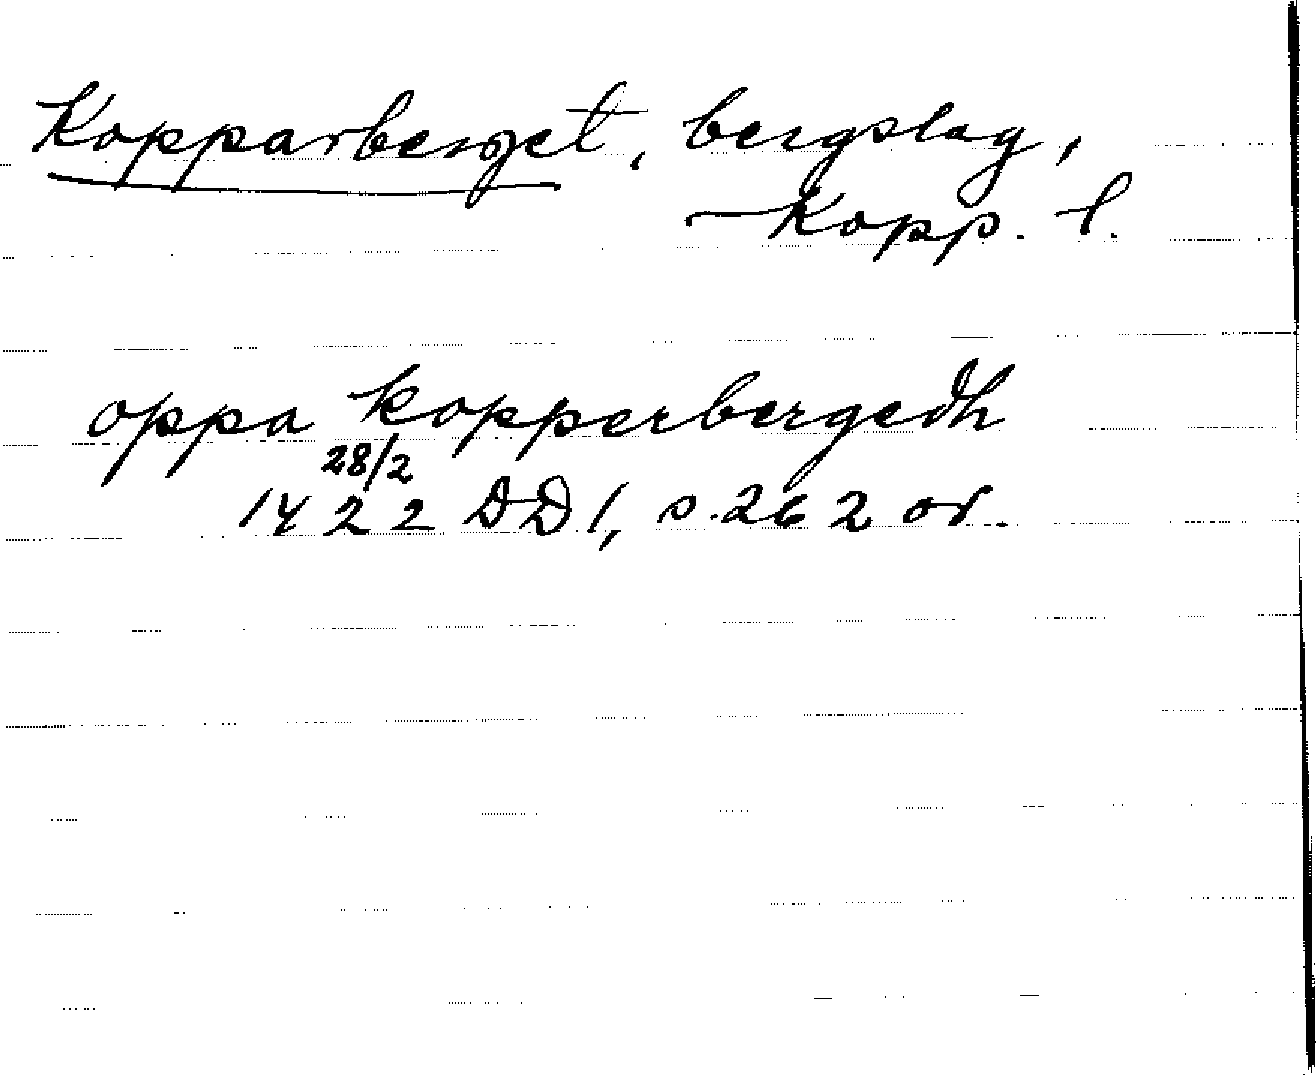 Kopparberget, bergslag,
Kopp. l.
oppa kopperbergedh
28/2
1422 DD 1, s. 262 or.